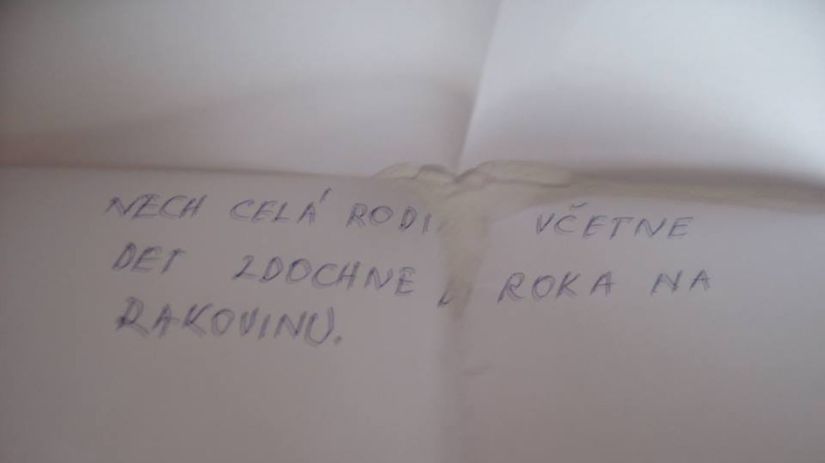 NECH CELÁ RODI VČETNE
DET ZDOCHNE ROKA NA
RAKOVINU.